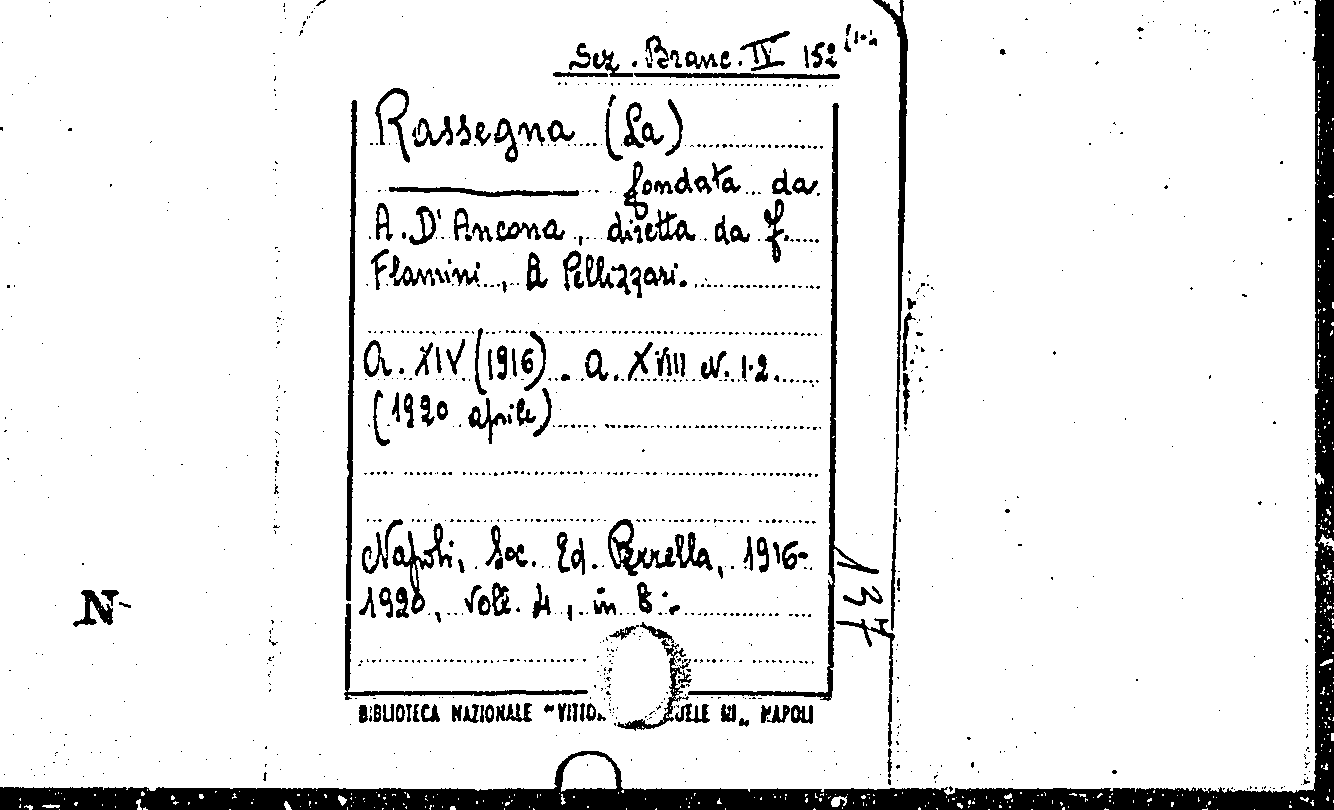 Sez. Branc. IV 152
Rassegna (La)
fondata da
A. D'Ancona, diretta da F.
Flamini, A Pellizzari.
a. XIV (1916). a. XVIII N. 1-2.
(1920 aprile)
Napoli, Soc. Ed. Perrella, 1916-
1920, voll. 4, in 8°.
BIBLIOTECA NAZIONALE "VITTO UELE III„ NAPOLI
137
N